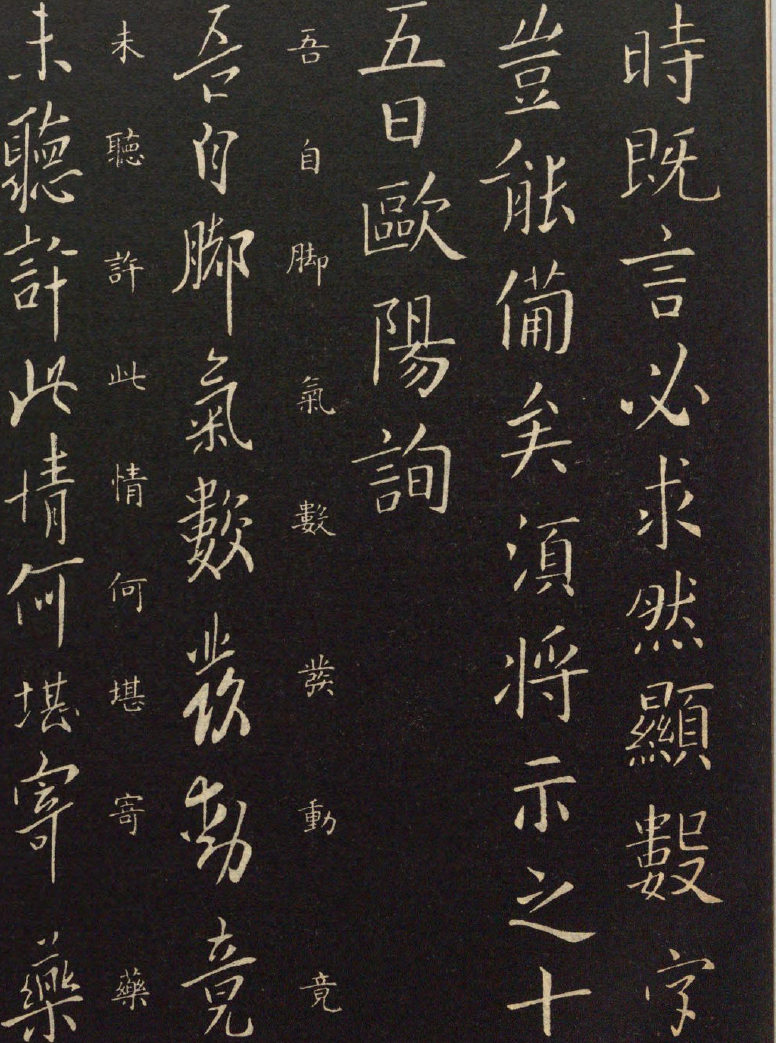 時既言必求然顯數字
豈能備矣須將示之十
五日歐陽詢
吾自脚氣數發動竟
吾自脚氣數發動竟
未聽許此情何堪寄藥
未聽許此情何堪寄藥